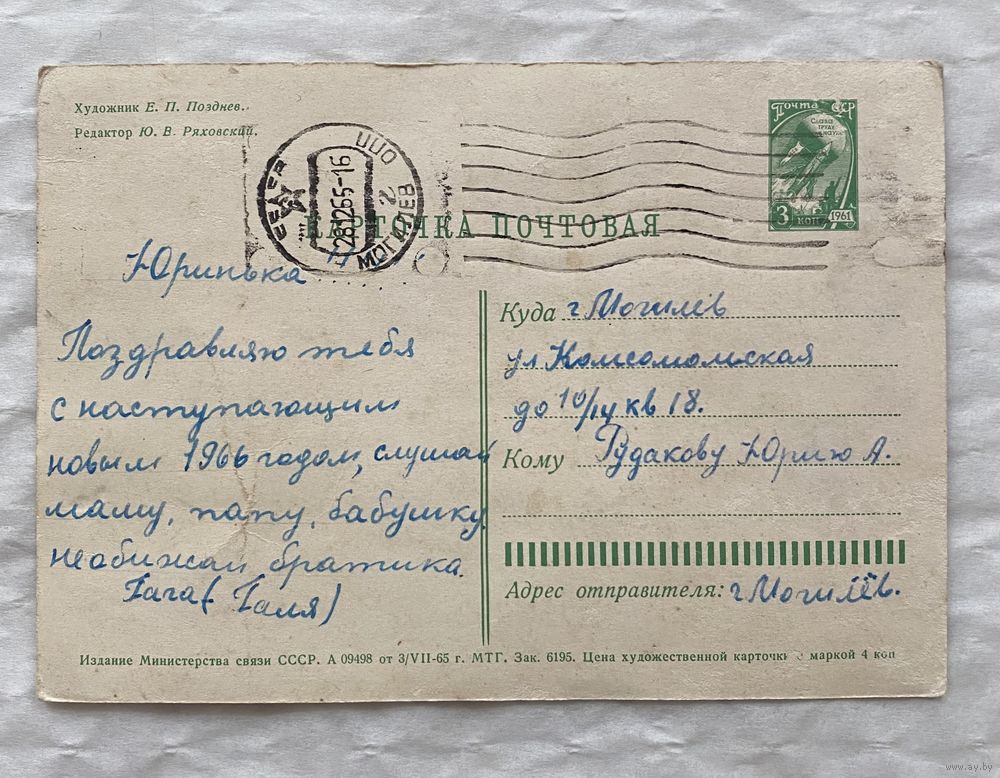 Художник Е. П. Позднев.
Редактор Ю. В. Ряховский.
Почта СССР
Слава
труду
и науке
3
коп
1961
ЦПО
МОГИЛЕВ
2
281265-16
КАРТОЧКА ПОЧТОВАЯ
Юринька
Поздравляю тебя
с наступающим
новым 1966 годом, слушай
маму, папу, бабушку,
необижай братика.
Гага (Галя)
Куда г Могилёв
ул Комсомомская
до 10/14 кв 18.
Кому Рудакову Юрию А.
Адрес отправителя: г Могилёв.
Издание Министерства связи СССР. А 09498 от 3/VII-65 г. МТГ. Зак. 6195. Цена художественной карточки с маркой 4 коп
www.ay.by